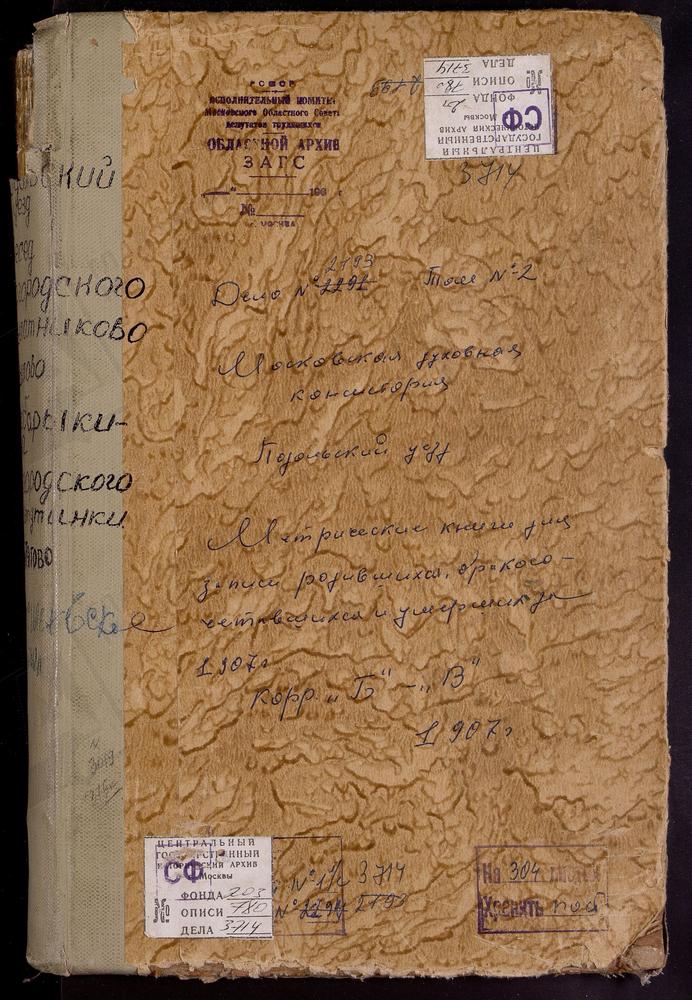 РСФСР
ИСПОЛНИТЕЛЬНЫЙ КОМИТЕ
Московского Областного Совет
депутатов трудящихся
ОБЛАСТНОЙ АРХИВ
ЗАГС
№
г. МОСКВА
ЦЕНТРАЛЬНЫЙ
ГОСУДАРСТВЕННЫЙ
ИСТОРИЧЕСКИЙ АРХИВ
Москвы
СФ
ФОНДА
ОПИСИ 780
ДЕЛА 3714
3714
2193
Дело № 2291 Том № 2
Московская духовная
консистория
Подольский уезд
Метрические книги для
записи родившихся, бракосо-
четавшихся и умерших за
1907 г
корр. „Б" – „В"
1907 г
ский
езд
ородского
тниково
лово
барыки-
ородского
утинки
гово
ЦЕНТРАЛЬНЫЙ
ГОСУДАРСТВЕННЫЙ
ИСТОРИЧЕСКИЙ АРХИВ
Москвы
СФ
ФОНДА 203
ОПИСИ 780
ДЕЛА 3714
№ 1/2 3714
2193
На 304 листах
Хранить пост